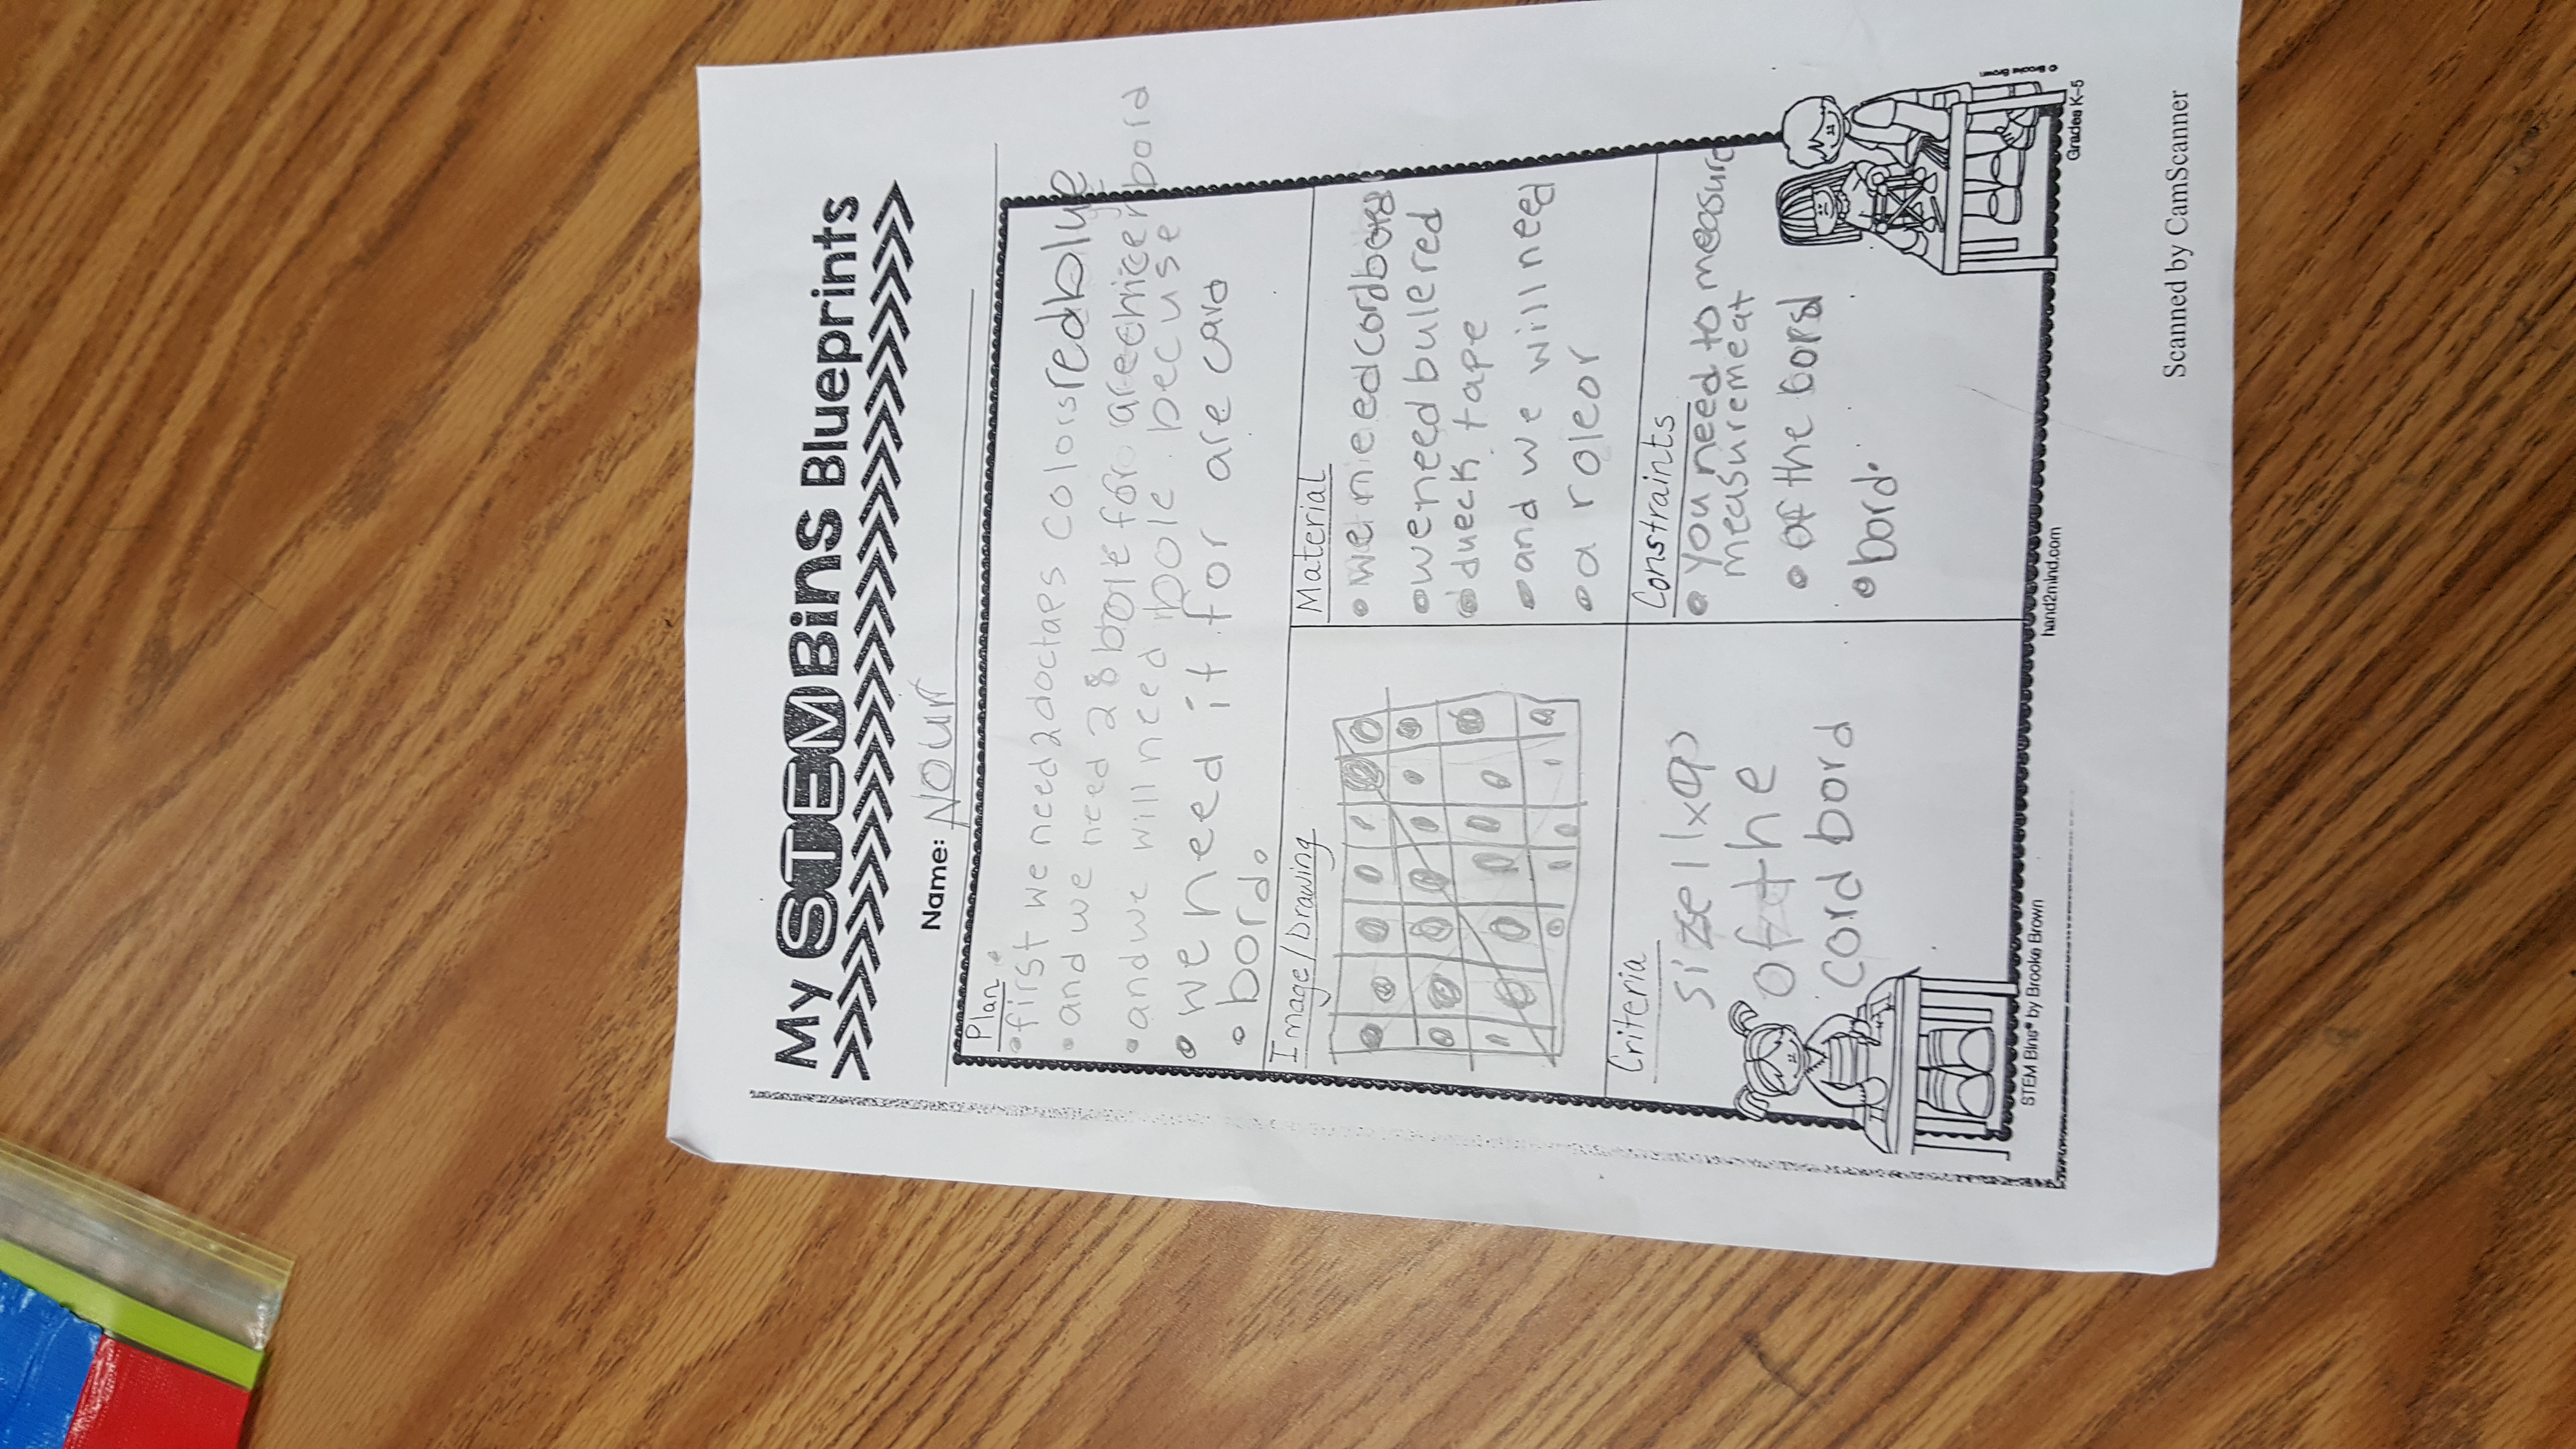 My STEM Bins Blueprints
Name: Nour
Plan
first we need 2 doctaps colors red blue
and we need 28 for are
and we will need bole becuse bord
we need it for are card
bord.
Image/Drawing
Material
we need cordbord
we need bule red
dueck tape
and we will need
a roleor
Criteria
size 11x9
of the
cord bord
Constraints
you need to measure
measuremeat
of the bord
bord.
STEM Bins® by Brooke Brown
hand2mind.com
Grades K–5
© Brooke Brown
Scanned by CamScanner